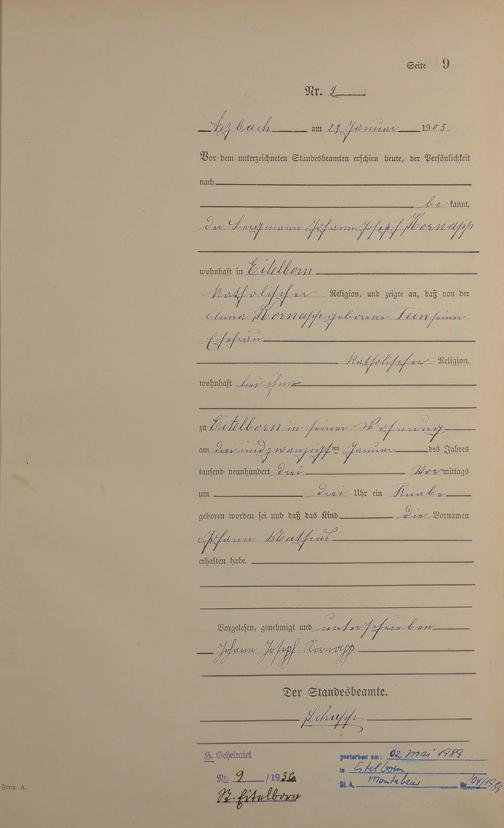 Seite 9
Nr. 9
Arzbach am 23 Januar 1903.
Vor dem unterzeichneten Standesbeamten erschien heute, der Persönlichkeit
nach
be kannt,
der Bergmann Johann Joseph Kornapp
wohnhaft in Eitelborn
katholischer Religion, und zeigte an, daß von der
Anna Kornapp geborene seiner
Ehefrau
katholischer Religion,
wohnhaft bei ihm
zu Eitelborn in seiner Wohnung
am drei und zwanzigsten Januar des Jahres
tausend neunhundert drei Vor mittags
um drei Uhr ein Knabe
geboren worden sei und daß das Kind die Vornamen
Johann Mathias
erhalten habe.
Vorgelesen, genehmigt und unterschrieben
Johann Joseph Kornapp
Der Standesbeamte.
H. Geheiratet
Nr. 9 /1936
St. Eitelborn
gestorben am: 02 Mai 1989
in Eitelborn
St. A. Montabaur Nr.
Form. A.